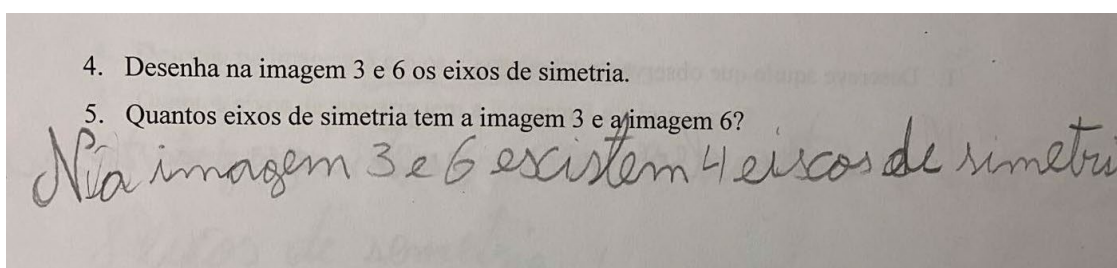 4. Desenha na imagem 3 e 6 os eixos de simetria.
5. Quantos eixos de simetria tem a imagem 3 e a imagem 6?
Nia imagem 3 e 6 escistem 4 eiscos de simetri